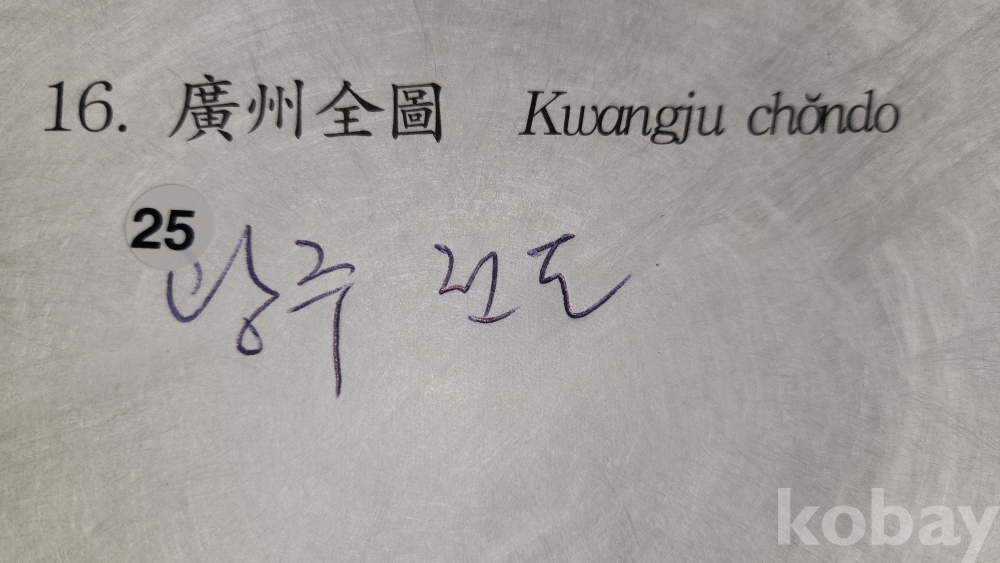 16. 廣州全圖 Kwangju chŏndo
25
광주 전도
kobay